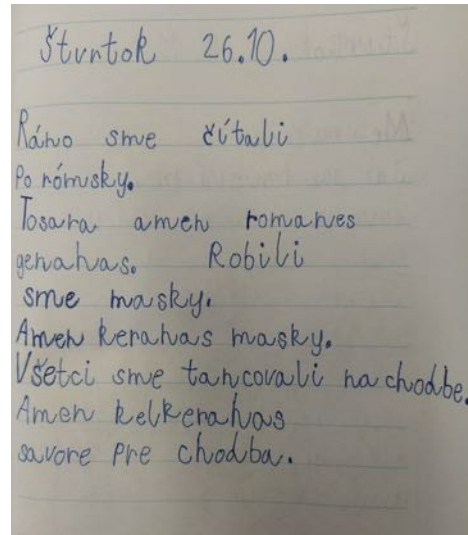 Štvrtok 26.10.
Ráno sme čítali
Po rómsky.
Tosara amen romanes
genahas. Robili
sme masky.
Amen kerahas masky.
Všetci sme tancovali na chodbe.
Amen kelkerahas
savore pre chodba.